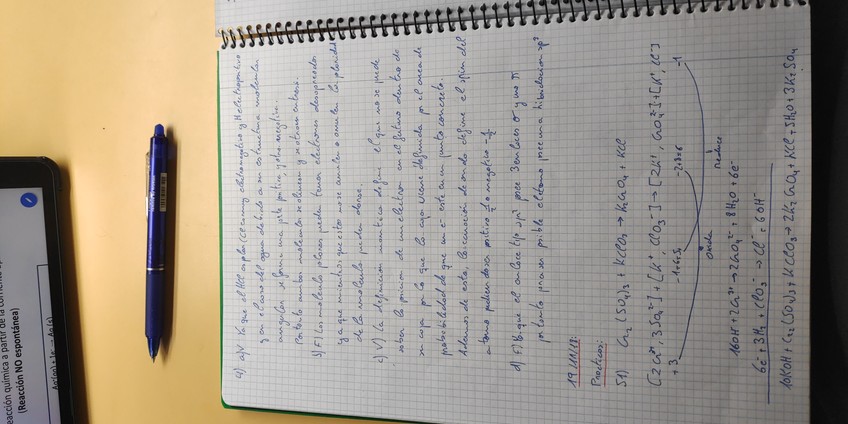 eacción química a partir de la corriente
(Reacción NO espontánea)
4) a) V. Ya que el HCl es polar (Cl es muy electronegativo y H electropositivo
y en el caso del agua debido a su estructura molecular
angular se forma una parte positiva y otra negativa.
Por tanto ambas moléculas se disuelven
b) F) Las moléculas polares pueden tener electrones desapareados
ya que mientras que estos no se anulen o anulen la polaridad
de la molécula pueden darse.
c) V) La definición cuántica define el que no se puede
saber la posición de un electrón en el futuro dentro de
su caja por lo que la caja viene definida por el área de
probabilidad de que un e⁻ esté en un punto concreto.
Además de esto, la ecuación de onda define el spin del
átomo pudiendo ser positivo ½ o negativo -½
d) F) Ya que el enlace tipo sp² posee 3 enlaces σ y uno π
por tanto posible el átomo posee una hibridación sp²
19/11/19.
Practicos:
51) Cr₂(SO₄)₃ + KClO₃ → K₂CrO₄ + KCl
[2Cr³⁺, 3SO₄²⁻] + [K⁺, ClO₃⁻] → [2K⁺, CrO₄²⁻] + [K⁺, Cl⁻]
+3 -1 
oxida
reduce
16OH⁻ + 2Cr³⁺ → 2CrO₄²⁻ + 8H₂O + 6e⁻
6e⁻ + 3H₂ + ClO₃⁻ → Cl⁻ + 6OH⁻
10KOH + Cr₂(SO₄)₃ + KClO₃ → 2K₂CrO₄ + KCl + 5H₂O + 3K₂SO₄